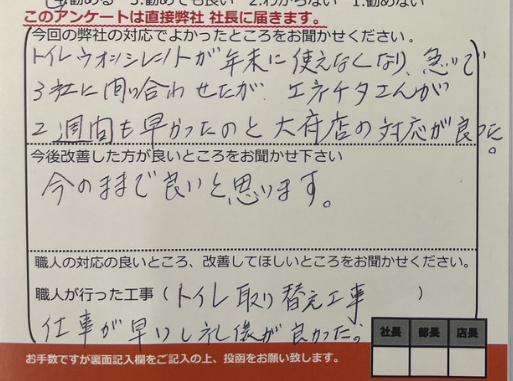 4.勧める　3.勧めても良い　2.わからない　1.勧めない
このアンケートは直接弊社 社長に届きます。
今回の弊社の対応でよかったところをお聞かせください。
トイレウォシュレットが年末に使えなくなり、急いで
3社に問い合わせたが、エネチタさんが
2週間も早かったのと大府店の対応が良った。
今後改善した方が良いところをお聞かせ下さい
今のままで良いと思います。
職人の対応の良いところ、改善してほしいところをお聞かせください。
職人が行った工事（トイレ取り替え工事　）
仕事が早いし礼儀が良かった。
社長 部長 店長
お手数ですが裏面記入欄をご記入の上、投函をお願い致します。